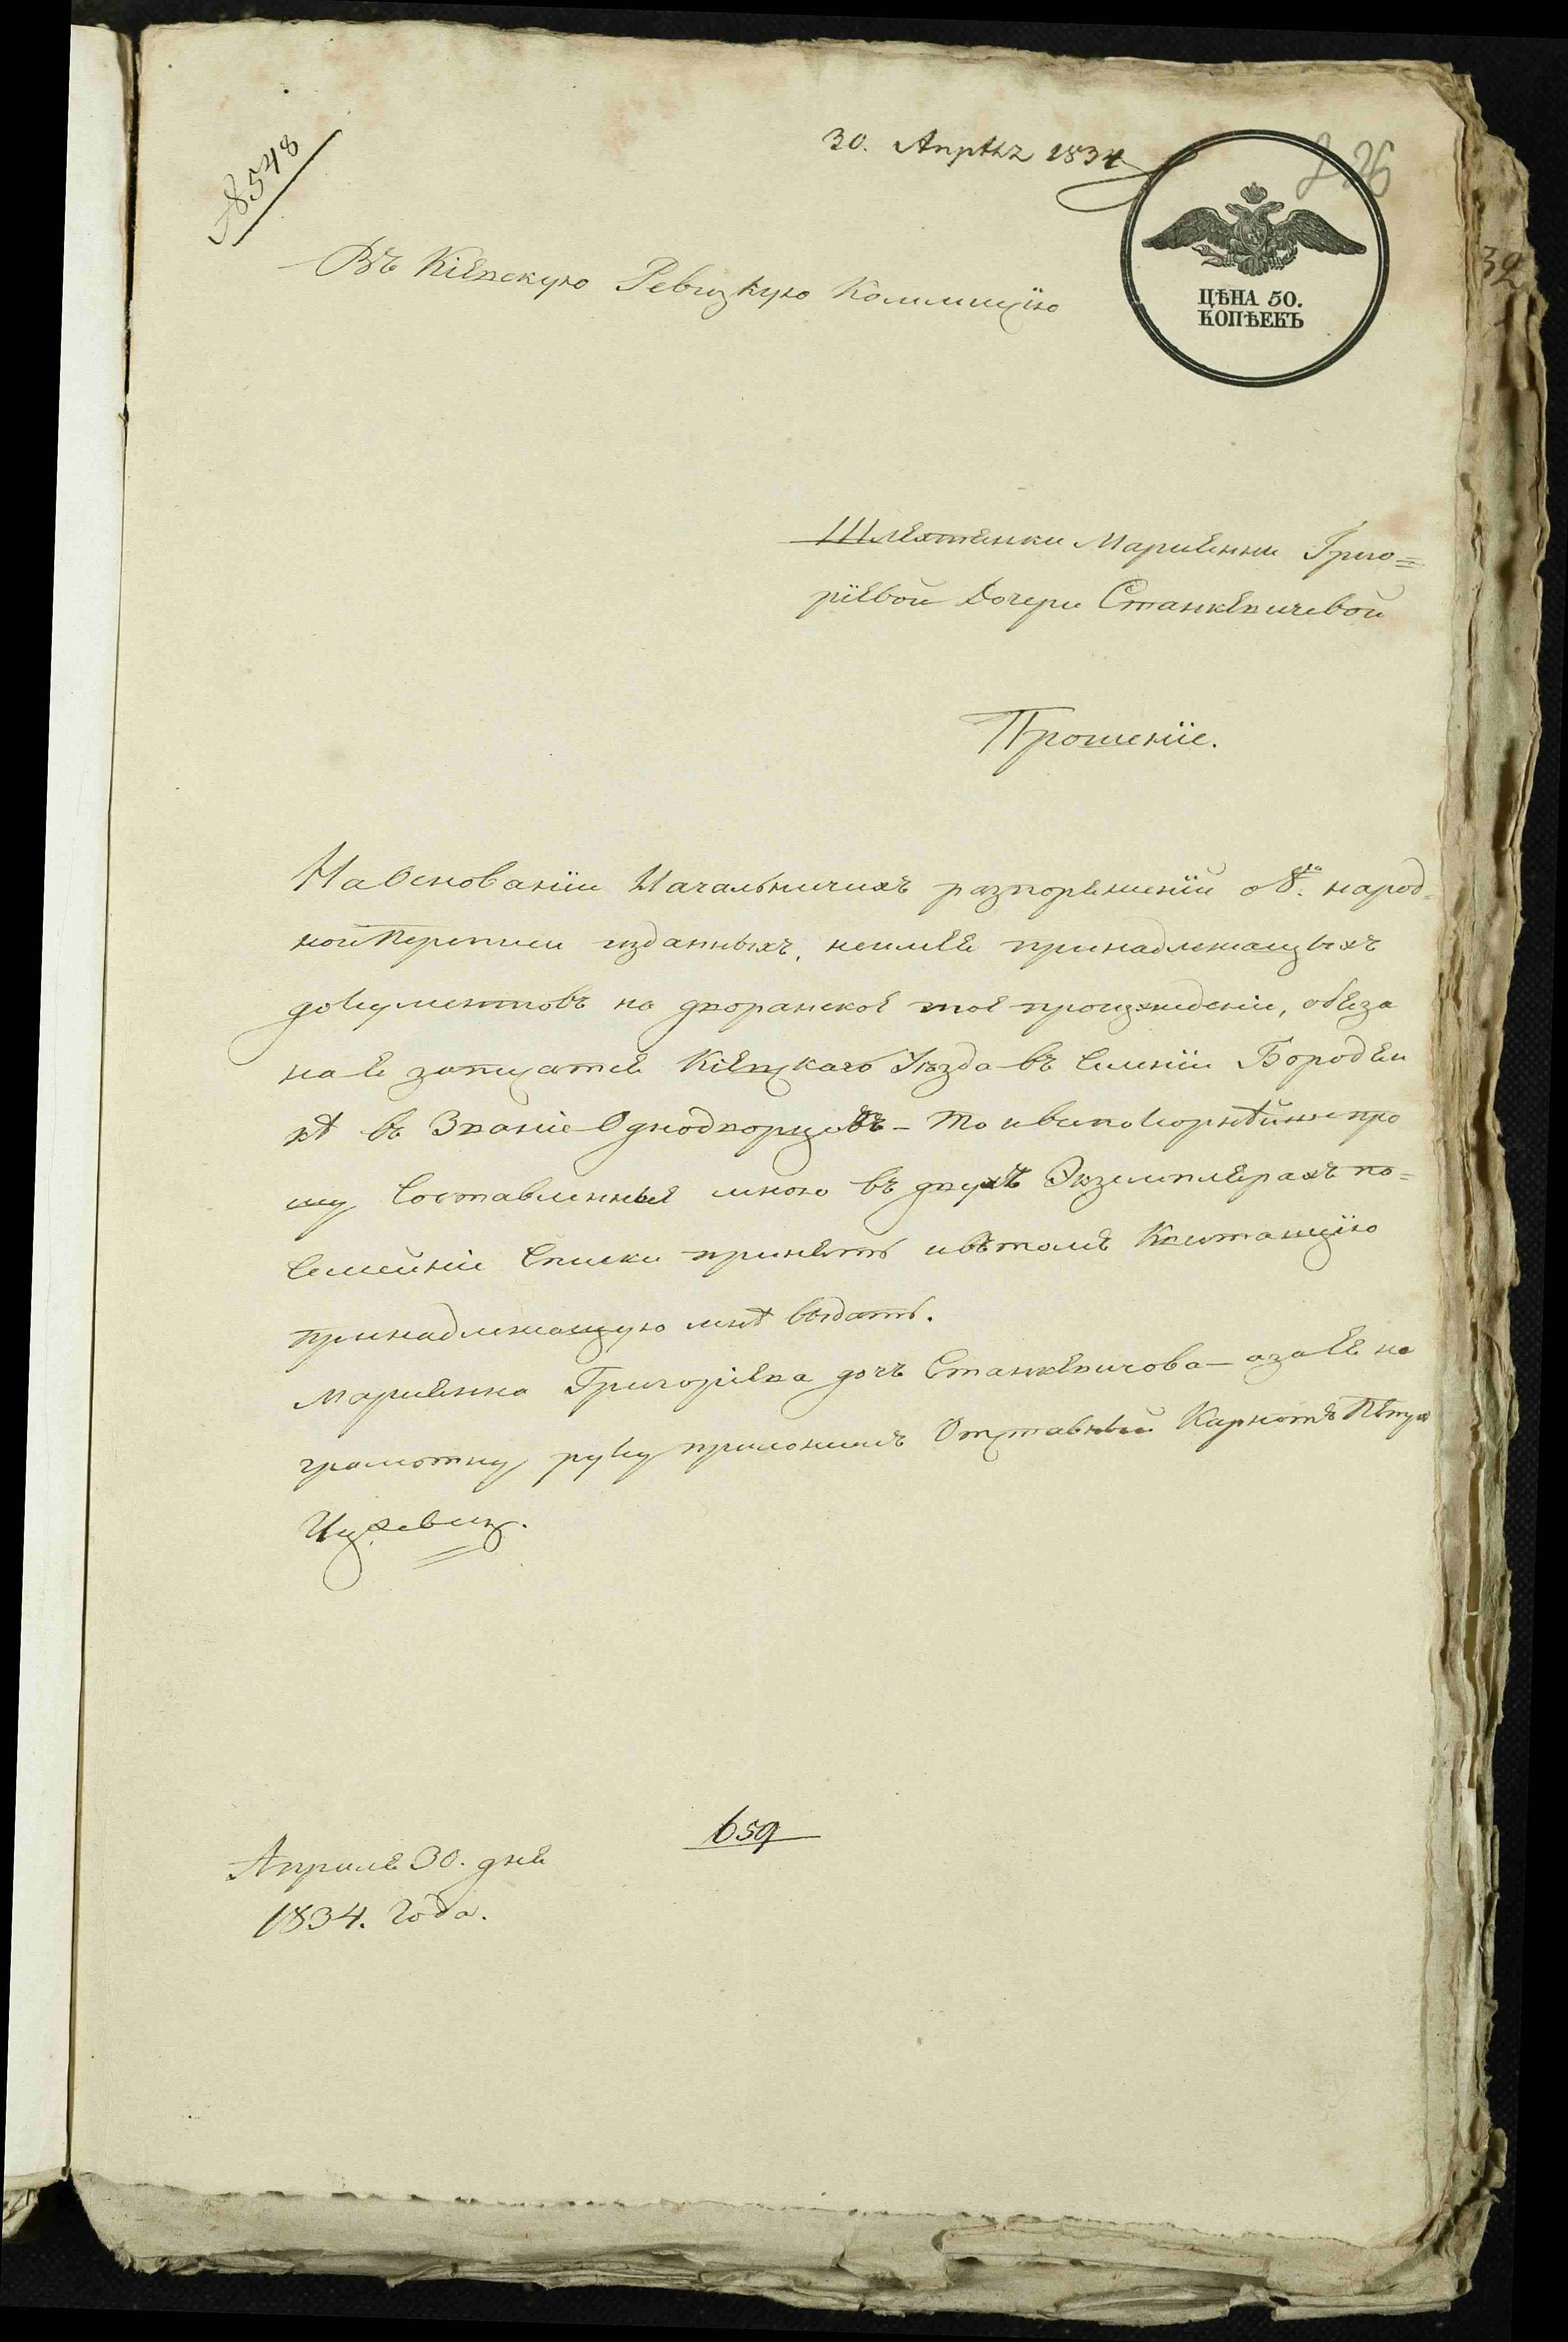 8548
30. Апрѣля 1834
226
32
ЦѢНА 50.
КОПѢЕКЪ
Въ Кіевскую Ревизкую Коммицію
Шляхтянки Марианни Григо=
ріевой Дочери Станкевичевой
Прошеніе.
На Основаніи Началничихъ разпоряженіи о 8.й народ=
ной Переписи изданныхъ, неимѣя принадлежащыхъ
документовъ на дворанское мое произхидение, обяза
ная запусатся Кіевскаго Уѣзда въ Селеніи Бородян
кѣ въ Званіе Однодворцовъ - То и всепокорнѣйше про
шу Составленныя мною въ двухъ Экземплярахъ по=
Семейніе Списки принять и вѣтомъ Квитанцію
принадлежащую мнѣ выдать.
Марианна Григориева дочъ Станкевичова - а за Ее не
грамотну руку приложилъ Отставный Карнетъ Петръ
Апреля 30. дня
1834. Года.
659